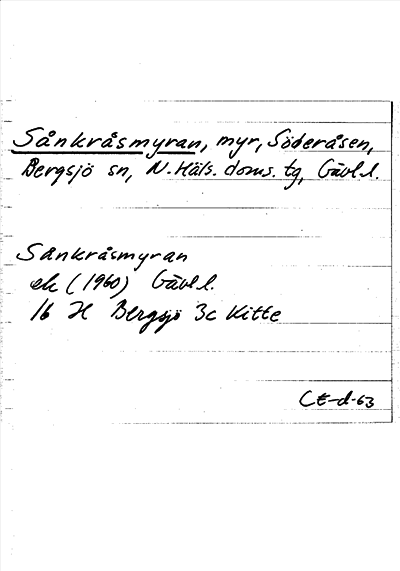 Sånkråsmyran, myr, Söderåsen,
Bergsjö sn, N. Häls. doms. tg, Gävl. l.
Sånkråsmyran
ek (1960) Gävl. l.
16 H Bergsjö 3c Kitte
CE-d-63